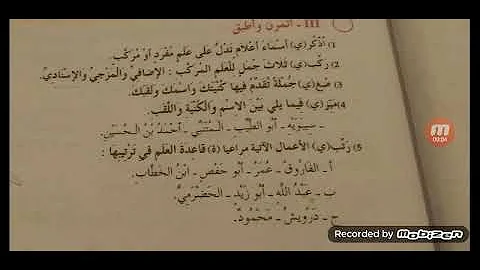 III - أتمرن وأطبق
1) أذكر(ي) أسماء أعلام تدل على علم مفرد أو مركب.
2) ركب(ي) ثلاث جمل للعلم المركب : الإضافي والمزجي والإسنادي.
3) ضع(ي) جملة تقدم فيها كنيتك واسمك ولقبك.
4) ميز(ي) فيما يلي بين الاسم والكنية واللقب.
- سيبويه - أبو الطيب - المتنبي - أحمد بن الحسين.
5) رتب(ي) الأعمال الآتية مراعيا (ة) قاعدة العلم في ترتيبها :
أ - الفاروق - عمر - أبو حفص - ابن الخطاب.
ب - عبد الله - أبو زيد - الحضرمي.
ج - درويش - محمود.
Recorded by mobizen